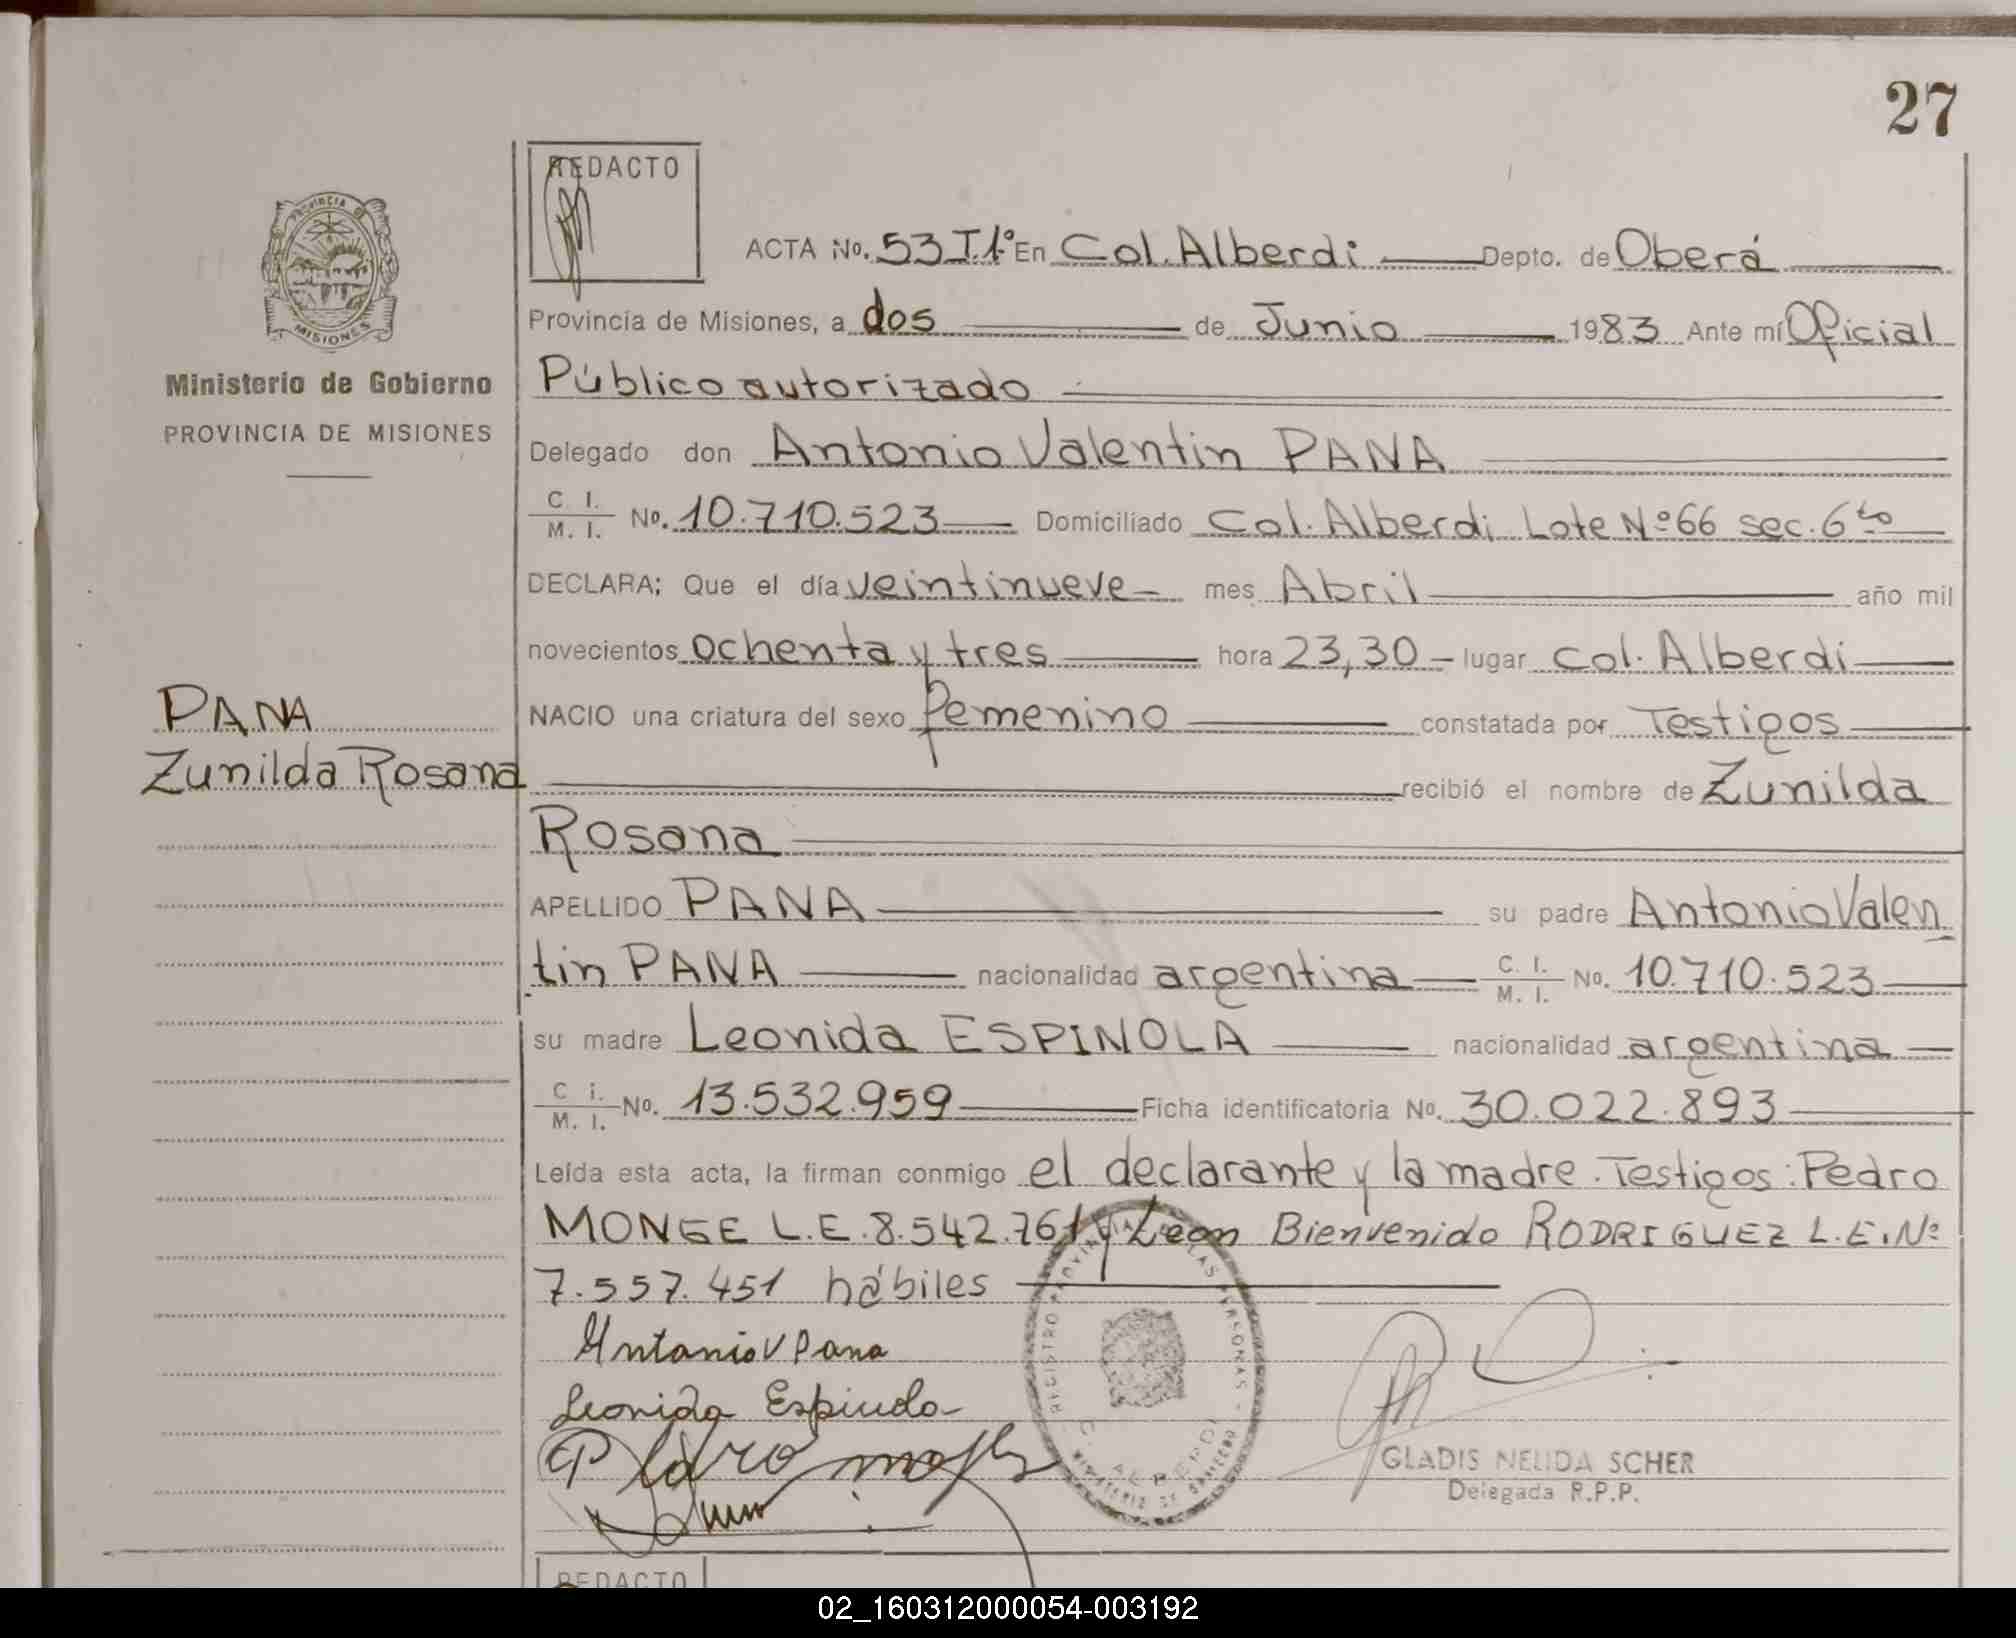 27
REDACTO
PROVINCIA DE
MISIONES
Ministerio de Gobierno
PROVINCIA DE MISIONES
ACTA No. 53 T.1º En Col. Alberdi Depto. de Oberá
Provincia de Misiones, a dos de Junio 1983 Ante mí Oficial
Público autorizado
Delegado don Antonio Valentin PANA
C. I. / M. I. No. 10.710.523 Domiciliado Col. Alberdi Lote Nº 66 sec. 6to
DECLARA; Que el día veintinueve mes Abril año mil
novecientos ochenta y tres hora 23,30 lugar Col. Alberdi
PANA
NACIO una criatura del sexo femenino constatada por Testigos
Zunilda Rosana
recibió el nombre de Zunilda
Rosana
APELLIDO PANA su padre Antonio Valen
tin PANA nacionalidad argentina C. I. / M. I. No. 10.710.523
su madre Leonida ESPINOLA nacionalidad argentina
C i. / M. I. No. 13.532.959 Ficha identificatoria No. 30.022.893
Leída esta acta, la firman conmigo el declarante y la madre. Testigos: Pedro
MONGE L.E. 8.542.761 y Leon Bienvenido RODRIGUEZ L.E. Nº
7.557.451 hábiles
Antonio V Pana
Leonida Espindola
Pedro
REGISTRO PROVINCIAL DE LAS PERSONAS
C. ALBERDI
MINISTERIO DE GOBIERNO
GLADIS NELIDA SCHER
Delegada R.P.P.
REDACTO
02_160312000054-003192